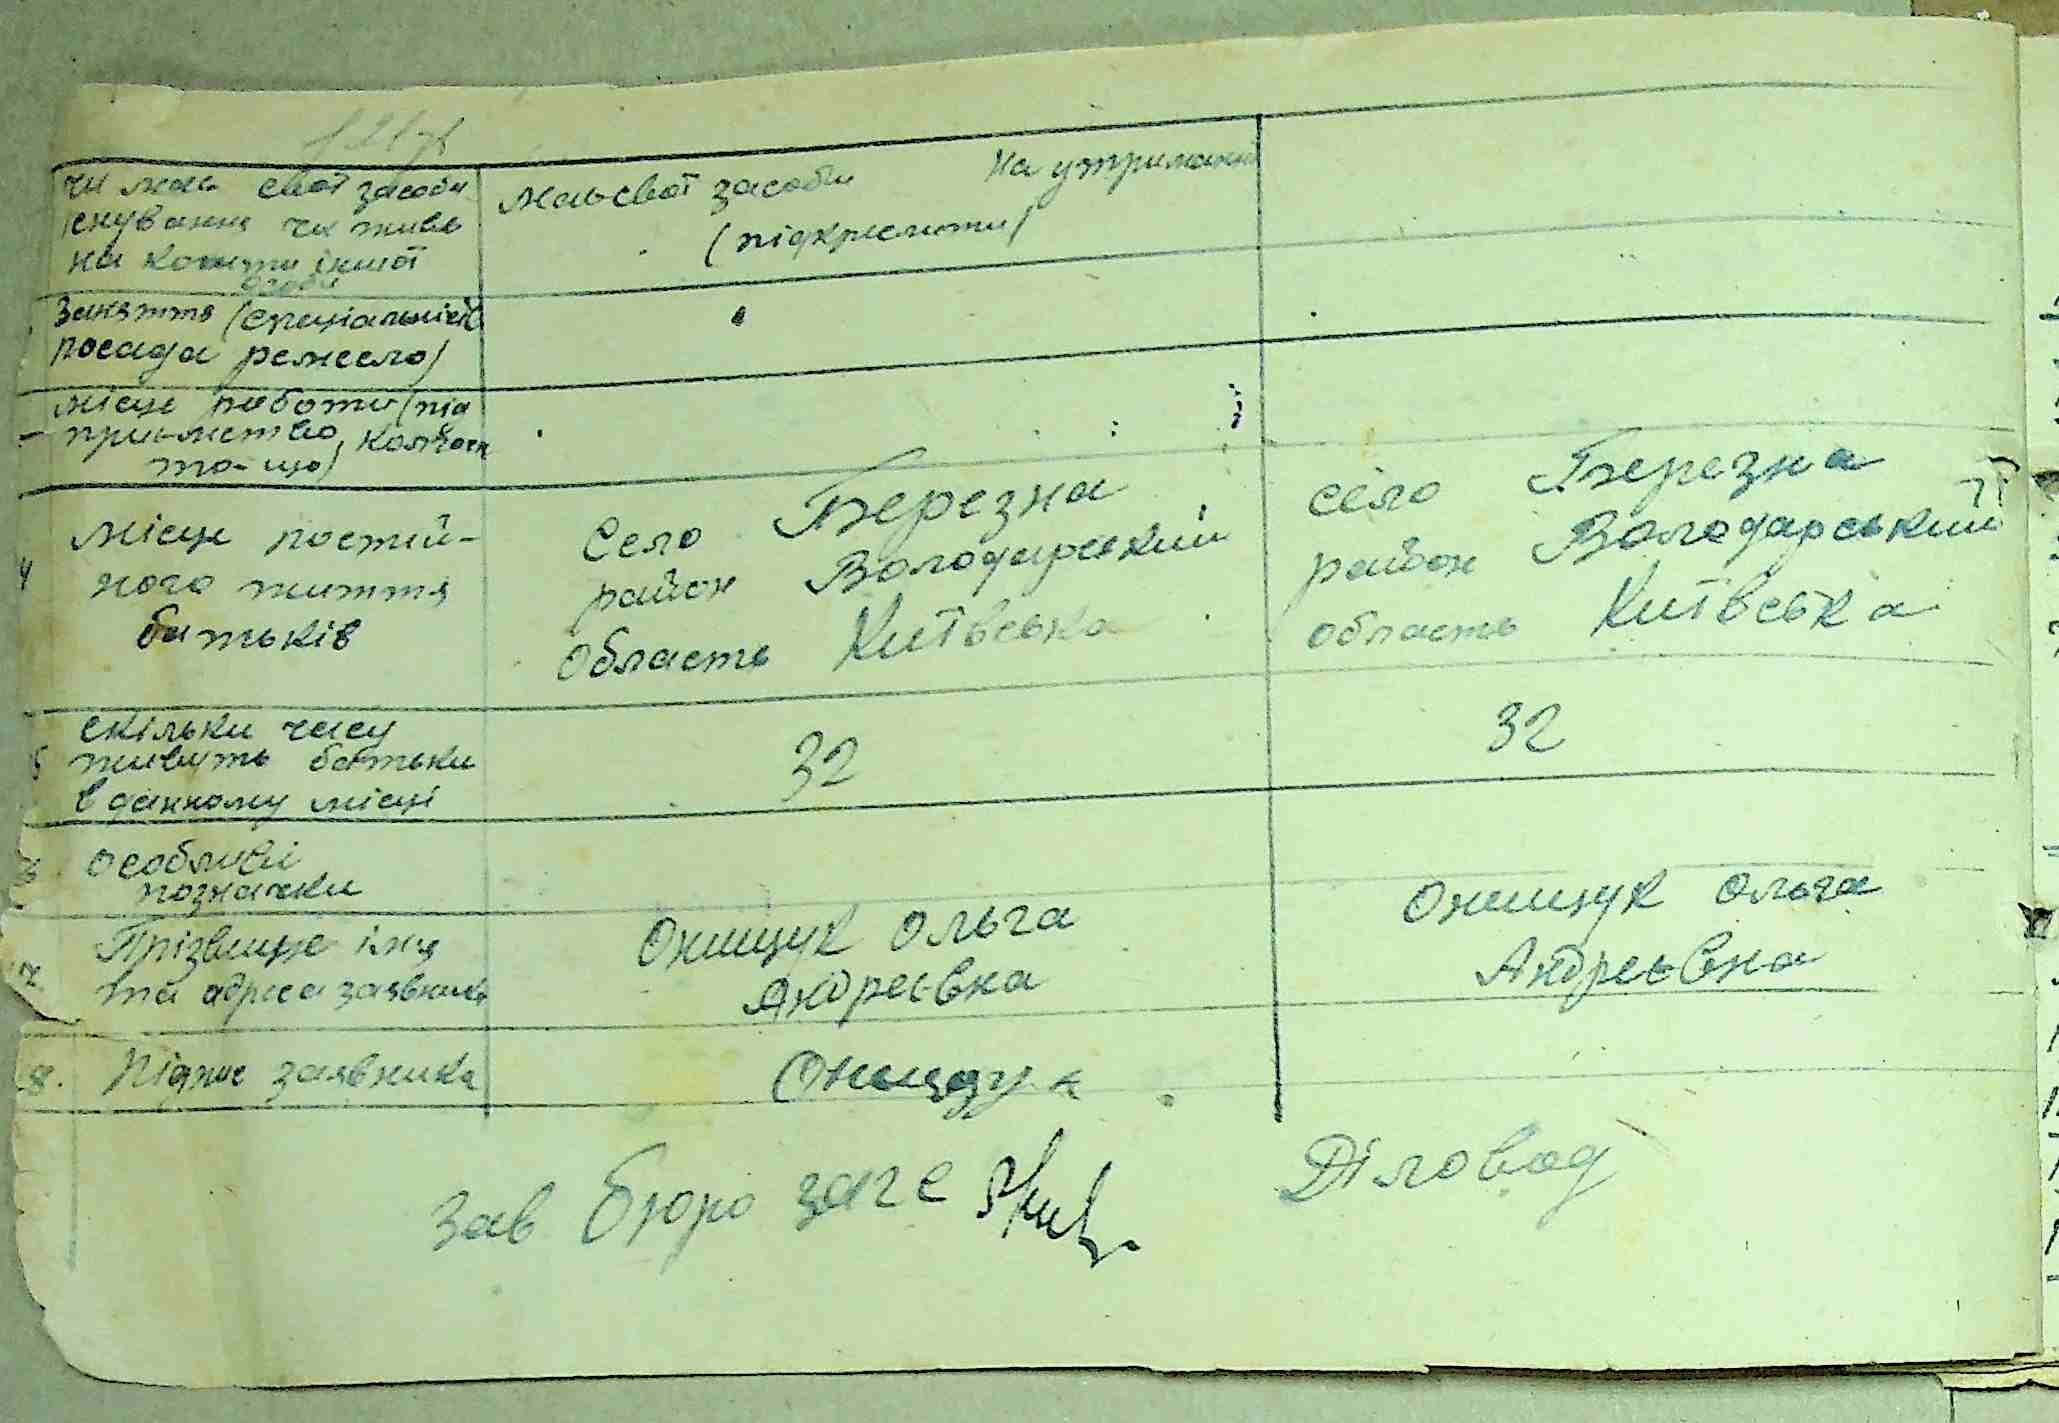 чи має свої засоби
існування чи живе
на кошти іншої
особи
має свої засоби на утриманні
(підкреслити)
Заняття (спеціальність
посада ремесло)
місце роботи (під
приємство, колгосп
то-що)
14 місце постій-
ного життя
батьків
Село Березна
район Володарський
область Київська
село Березна
район Володарський
область Київська
скільки часу
живуть батьки
в данному місці
32
32
особливі
позначки
Прізвище імя
та адреса заявника
Онищук Ольга
Андреєвна
Онищук Ольга
Андреєвна
18. Підпис заявника
Онищук
Зав бюро загс
Діловод